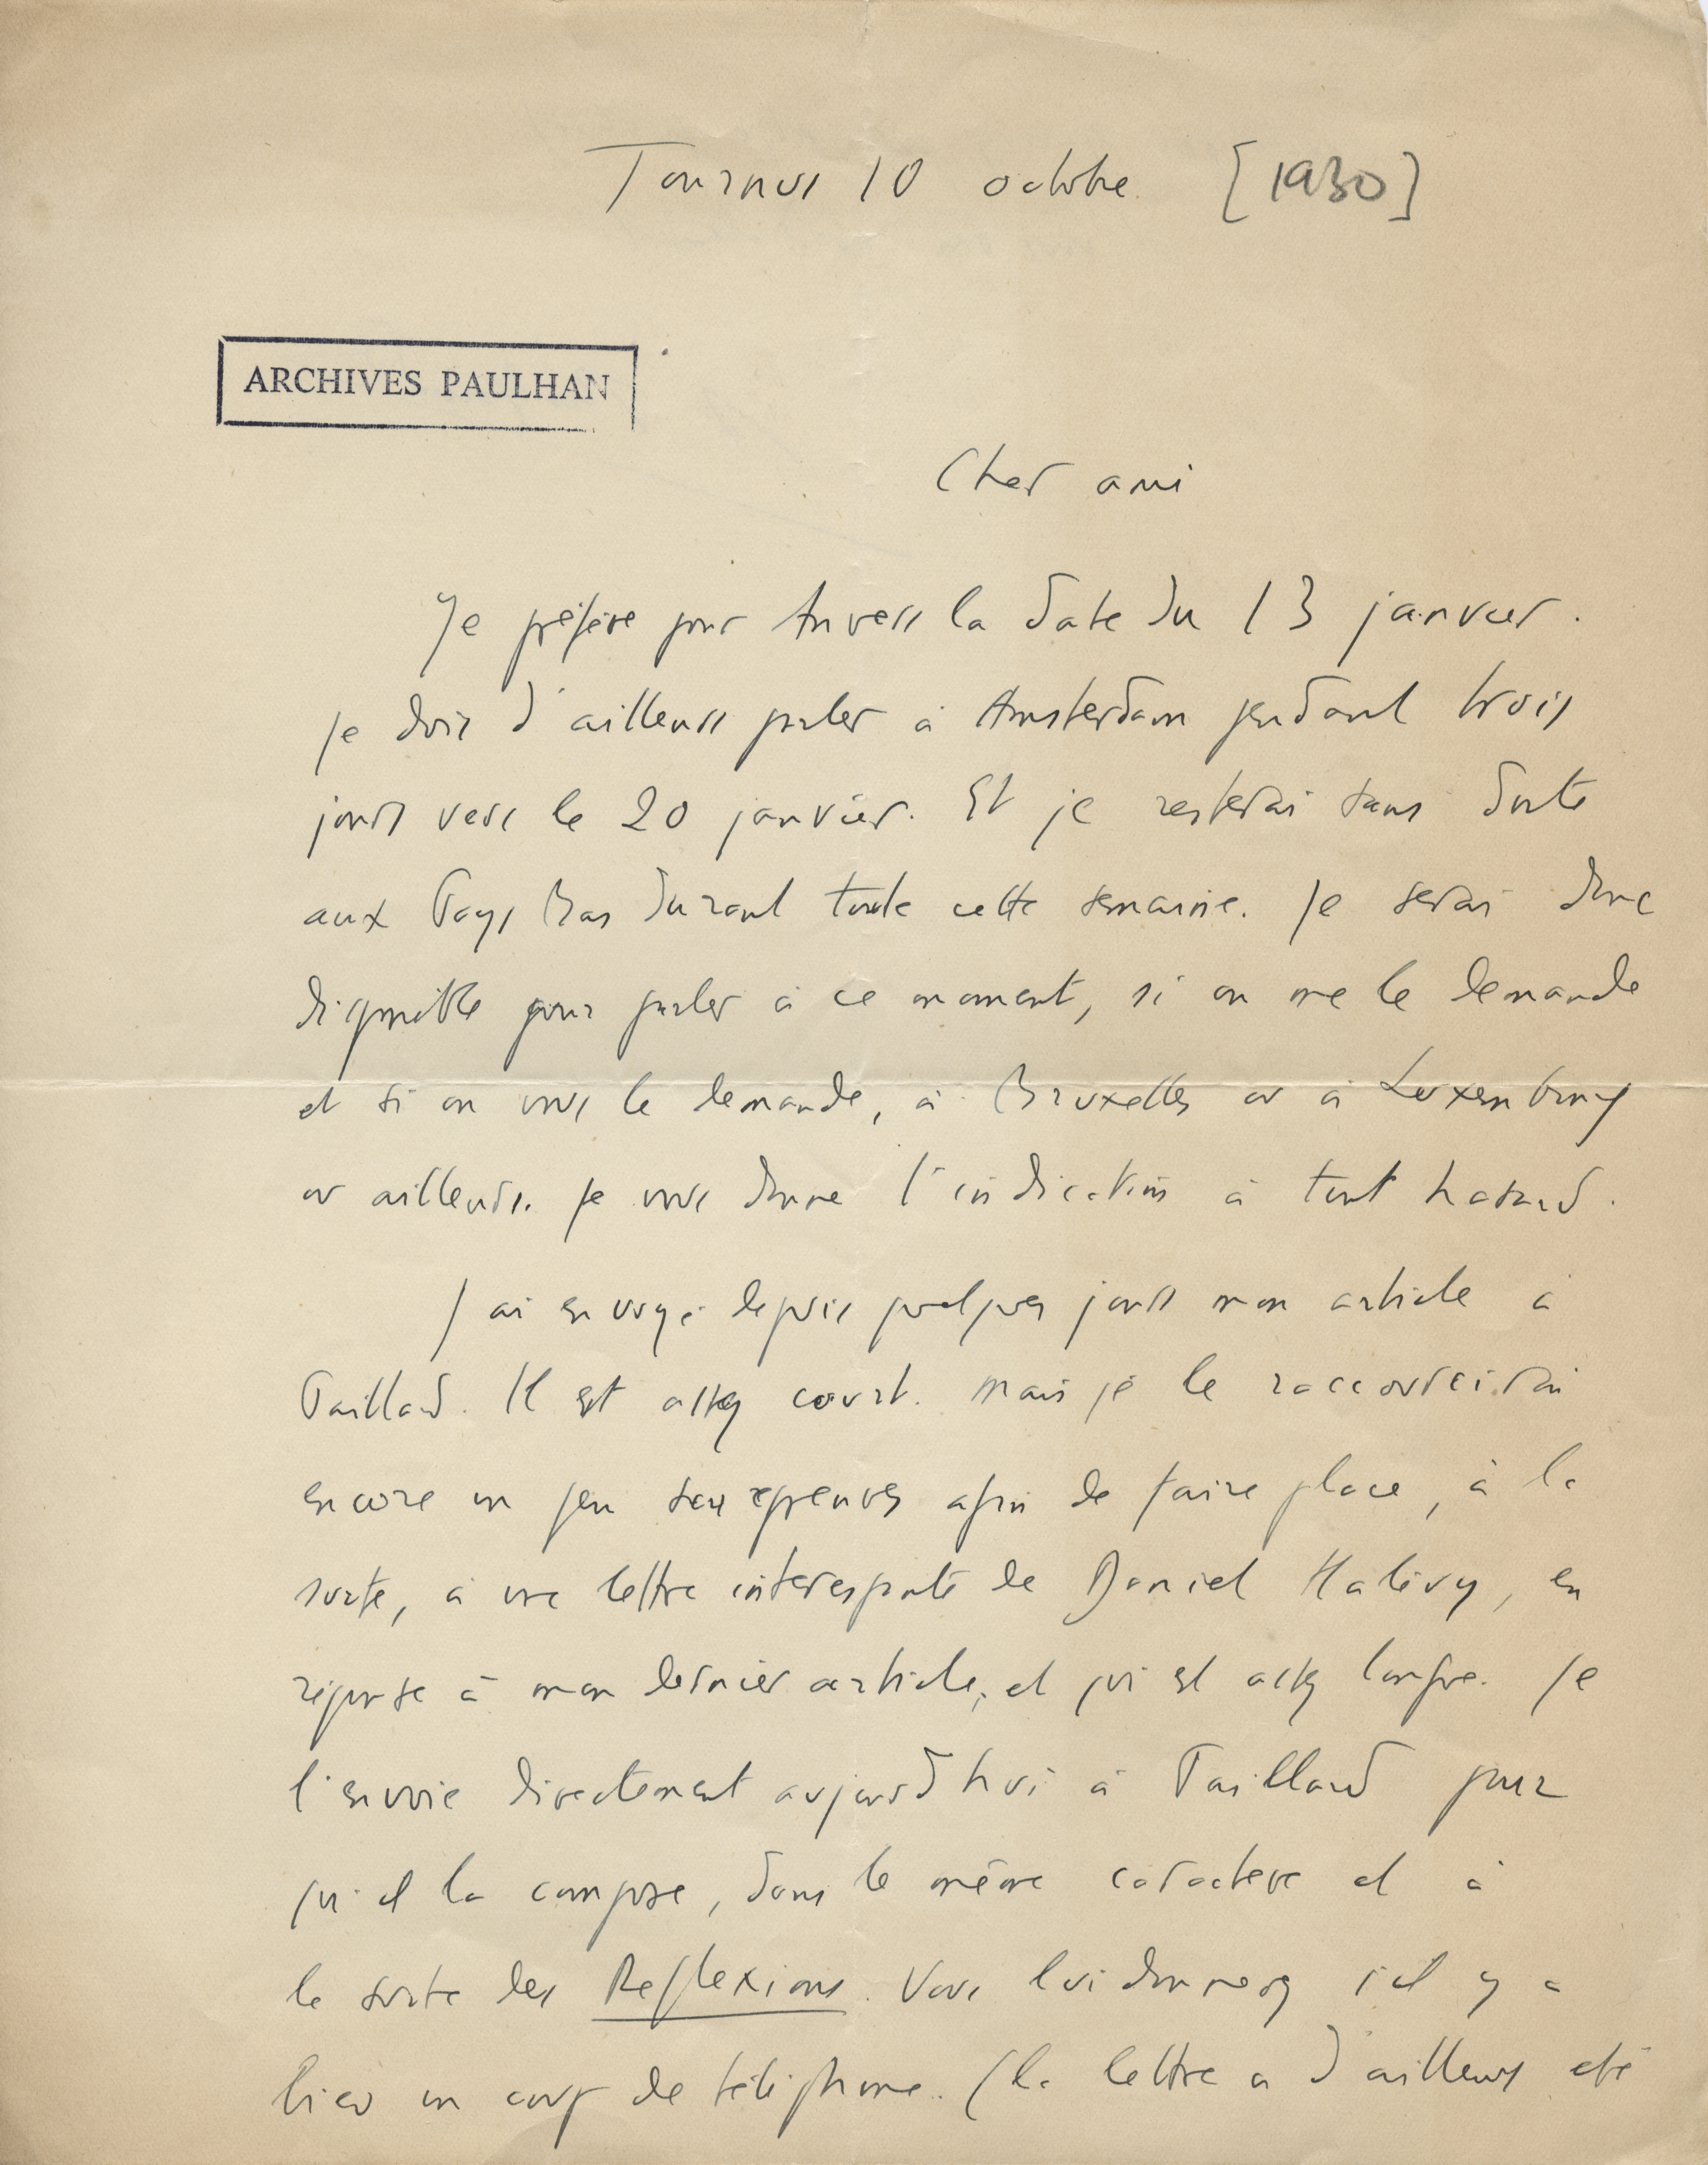 Tournus 10 octobre [1930]
ARCHIVES PAULHAN
Cher ami
Je préfère pour Anvers la date du 13 janvier.
Je dois d'ailleurs parler à Amsterdam pendant trois
jours vers le 20 janvier. Et je resterai sans doute
aux Pays Bas durant toute cette semaine. Je serai donc
disponible pour parler à ce moment, si on me le demande
et si on vous le demande, à Bruxelles ou à Luxembourg
ou ailleurs. Je vous donne l'indication à tout hasard.
J'ai envoyé depuis quelques jours mon article à
Paillard. Il est assez court. Mais je le raccourcirai
encore un peu sur épreuves afin de faire place, à la
suite, à une lettre intéressante de Daniel Halévy, en
réponse à mon dernier article, et qui est assez longue. Je
l'envoie directement aujourd'hui à Paillard pour
qu'il la compose, dans le même caractère et à
la suite des Reflexions. Vous lui donnerez s'il y a
lieu un coup de téléphone. (la lettre a d'ailleurs été